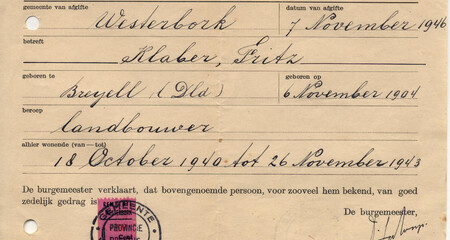 gemeente van afgifte datum van afgifte
Westerbork 7 November 1946
betreft
Klaber, Fritz
geboren te geboren op
Breyell (Dld) 6 November 1904
beroep
landbouwer
alhier wonende (van—tot)
18 October 1940 tot 26 November 1943
De burgemeester verklaart, dat bovengenoemde persoon, voor zooveel hem bekend, van goed
zedelijk gedrag is
De burgemeester,
GEMEENTE
PROVINCIE